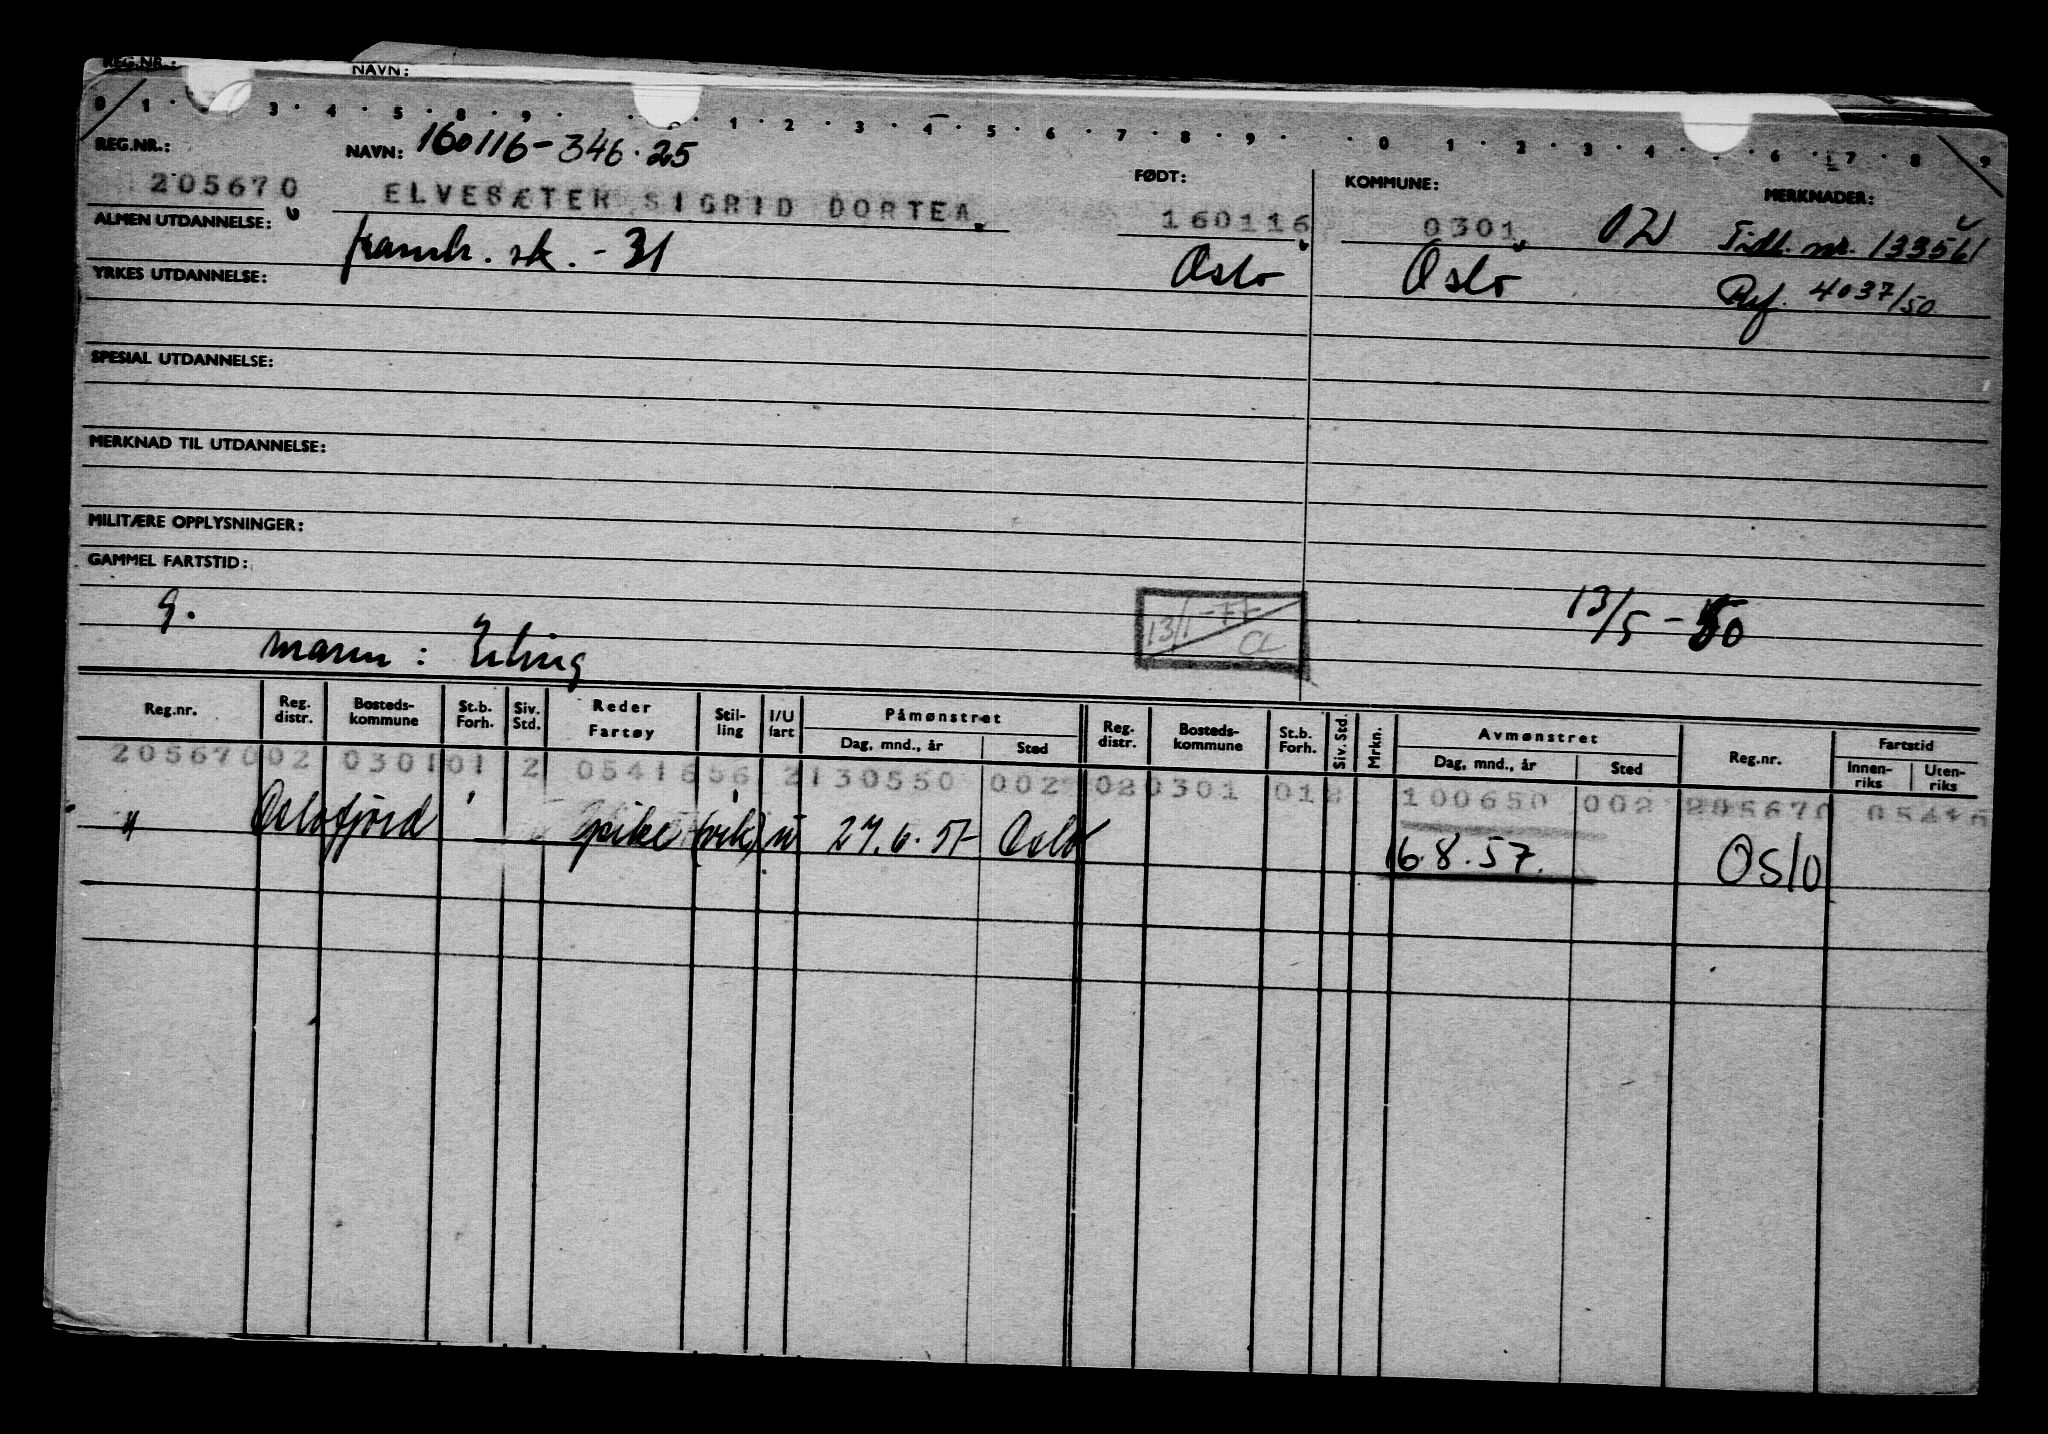 REG.NR.: NAVN:
0 1 · 3 · 4 · 5 · 8 · 9 · 1 · 2 · 3 · 4 · 5 · 6 · 7 · 8 · 9 · · 0 1 · 2 · 3 · 4 · · 6 · 7 · 8 · 9
REG.NR.: NAVN: 160116-346.25 FØDT: KOMMUNE: MERKNADER:
205670 ELVESÆTER SIGRID DORTEA. 160116 0301 02 Tidl. nr. 133561
ALMEN UTDANNELSE: framh. sk. - 31 Oslo Oslo Ref. 4037/50
YRKES UTDANNELSE:
SPESIAL UTDANNELSE:
MERKNAD TIL UTDANNELSE:
MILITÆRE OPPLYSNINGER:
GAMMEL FARTSTID:
g. 13/1-77 CL 13/5-50
mann: Erling
Reg.nr. Reg. distr. Bosteds-kommune St.b. Forh. Siv. Std. Reder Fartøy Stil-ling I/U fart Påmønstret Dag, mnd., år Sted Reg. distr. Bosteds-kommune St.b. Forh. Siv. Std. Mrkn. Avmønstret Dag, mnd., år Sted Reg.nr. Fartstid Innen-riks Uten-riks
205670 02 0301 01 2 0541656 2 130550 002 02 0301 01 2 100650 002 205670
" Oslofjord pike (vik) u 27.6.57 Oslo 16.8.57. Oslo